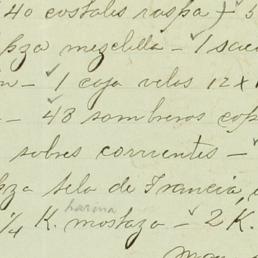 40 costales raspa + 5
pza mezclilla - 1 saco
- 1 caja velas 12 x
- 48 sombreros cop
sobres corrientes -
pza tela de Francia,
harina
1/4 K. mostaza - 2 K.